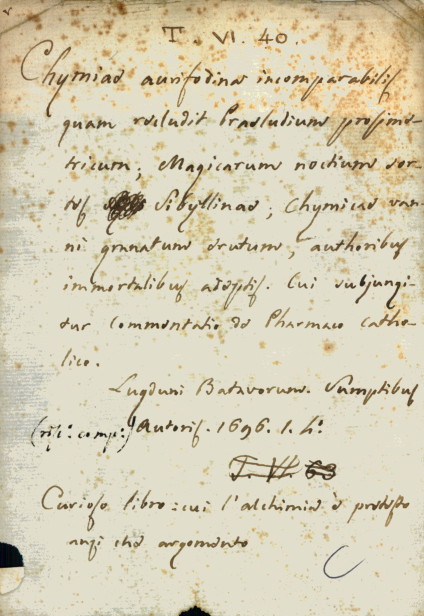 T. VI. 40.
Chymiae aurifodina incomparabilis
quam recludit Praeludium prosime-
tricum; Magicarum noctium sor-
tes Sibyllinae; Chymicae van-
ni granatum erutum, authoribus
immortalibus adeptis. Cui subjungi-
tur Commentatio de Pharmaco Catho-
lico.
Lugduni Batavorum. Sumptibus
comp:) Autoris. 1696. 1. 4°.
T. VI. 63
Curioso libro: cui l'alchimia è pretesto
anzi che argomento